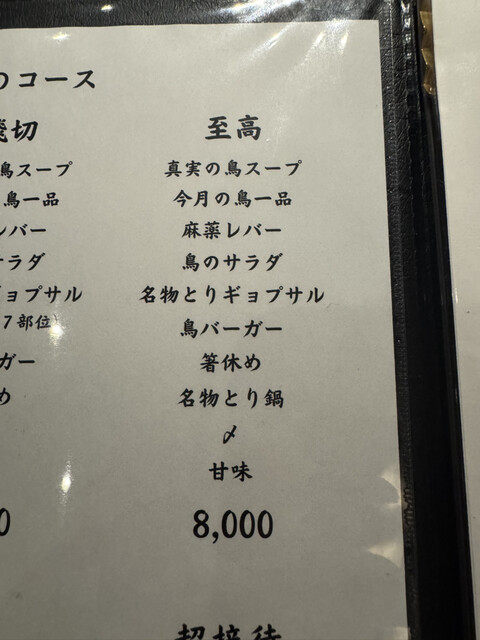 のコース
切
鳥スープ
鳥一品
レバー
サラダ
ギョプサル
7部位)
ガー
め
0
至高
真実の鳥スープ
今月の鳥一品
麻薬レバー
鳥のサラダ
名物とりギョプサル
鳥バーガー
箸休め
名物とり鍋
〆
甘味
8,000
超接待